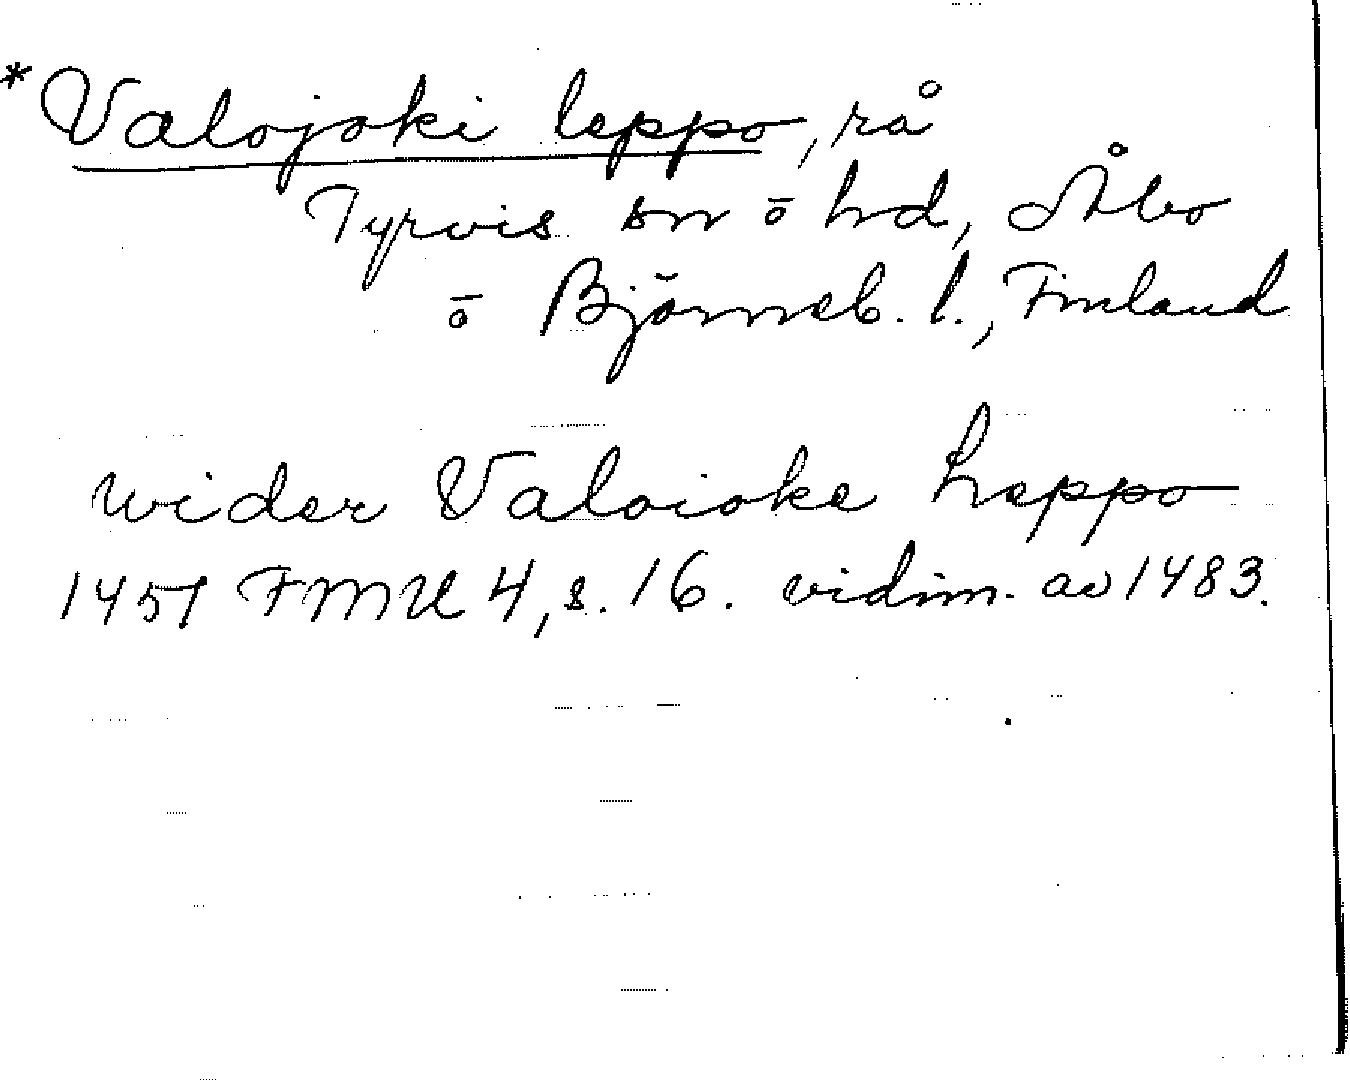 *Valojoki leppo, rå
Tyrvis sn ō hd, Åbo
ō Björneb. l., Finland
wider Valoioke Leppo
1451 FMU 4, s. 16. vidim. av 1483.